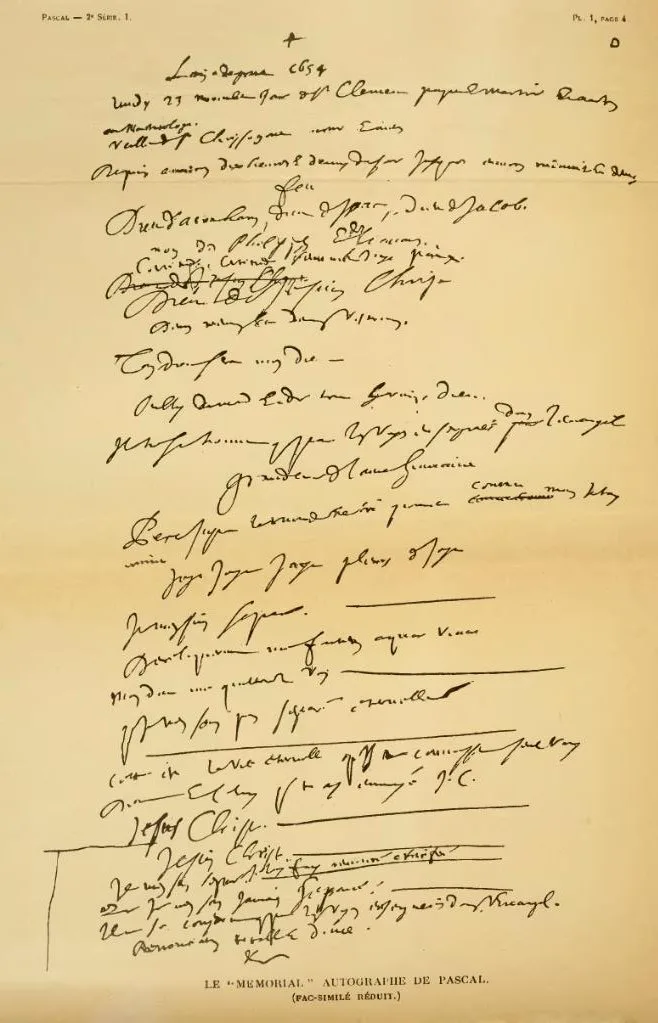 PASCAL — 2e SÉRIE. 1.
PL. 1, PAGE 4
L'an de grace 1654
lundy 23 novembre jour de St Clement pape et martir et autres
au Martirologe
veille de St Chrisogone martir et autres
Depuis environ dix heures et demy du soir jusques environ minuit et demy
feu
Dieu d'Abraham, dieu d'Isaac, dieu de Jacob.
non des Philosophes et des savans.
Certitude, certitude sentiment joye paix.
Dieu de Jesus Christ
Dieu de Jesus Christ
Deum meum et Deum vestrum.
Ton dieu sera mon dieu —
Oubly du monde et de tout hormis dieu.
Il ne se trouve que par les voyes enseignées dans l'evangile
Grandeur de l'ame humaine
Pere juste le monde ne t'a point connu mais je t'ay
connu
Joye Joye Joye pleurs de joye
Je m'en suis separé.
Dereliquerunt me fontem aquae vivae
mon dieu me quitterez vous
que je n'en sois pas separé eternellement
Cette est la vie eternelle qu'ils te connoissent seul vray
Dieu et celuy que tu as envoyé J.C.
Jesus Christ.
Jesus Christ.
Je m'en suis separé je l'ay fuy renoncé crucifié
que je n'en sois jamais separé.
Il ne se conserve que par les voyes enseignées dans l'evangile.
Renonciation totale et douce.
LE "MÉMORIAL" AUTOGRAPHE DE PASCAL.
(FAC-SIMILÉ RÉDUIT.)